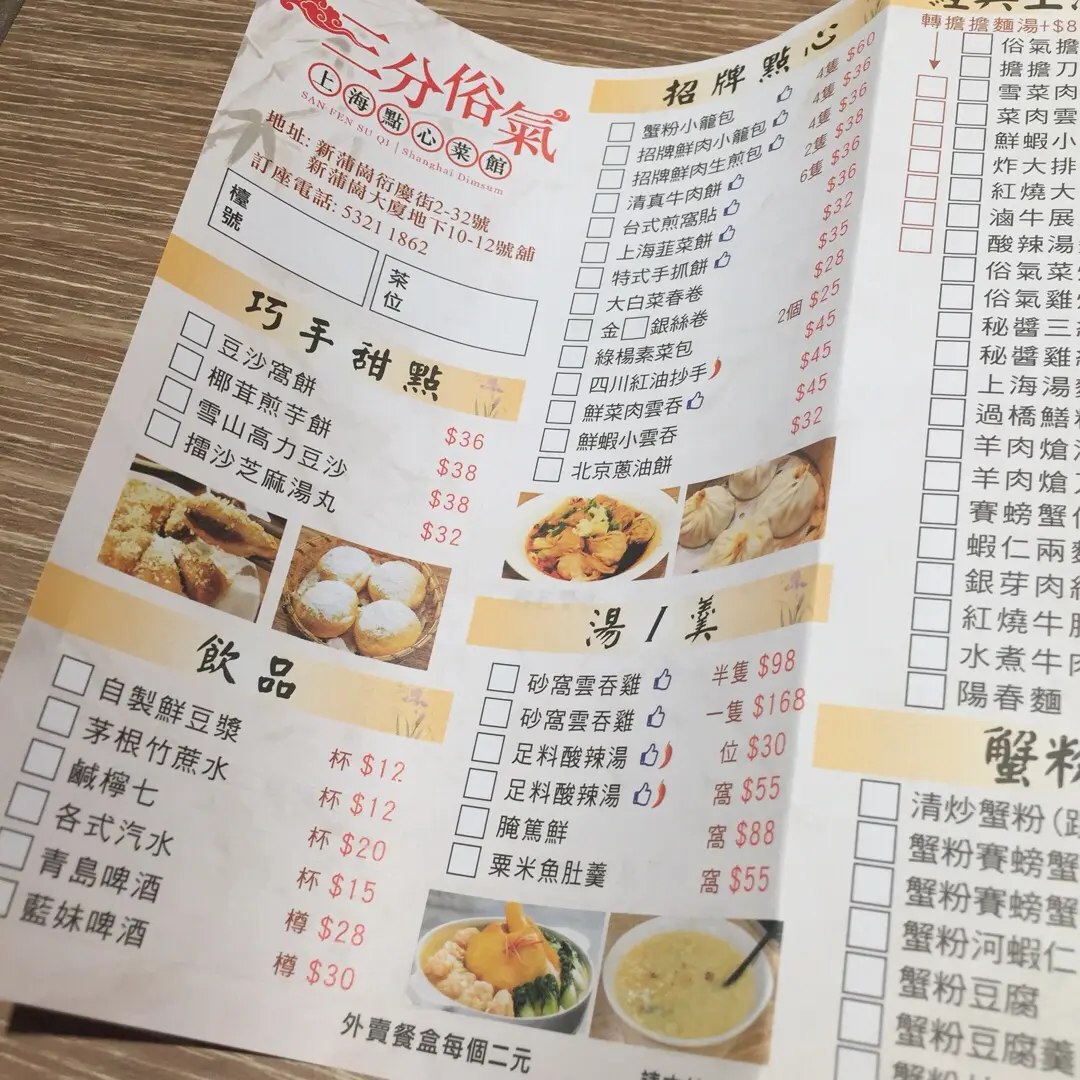 三分俗氣
上海點心菜館
SAN FEN SU QI | Shanghai Dimsum
地址: 新蒲崗衍慶街2-32號
新蒲崗大廈地下10-12號舖
訂座電話: 5321 1862
檯號
茶位
巧手甜點
豆沙窩餅 $36
椰茸煎芋餅 $38
雪山高力豆沙 $38
擂沙芝麻湯丸 $32
飲品
自製鮮豆漿 杯 $12
茅根竹蔗水 杯 $12
鹹檸七 杯 $20
各式汽水 杯 $15
青島啤酒 樽 $28
藍妹啤酒 樽 $30
招牌點心
蟹粉小籠包 4隻 $60
招牌鮮肉小籠包 4隻 $36
招牌鮮肉生煎包 4隻 $36
清真牛肉餅 2隻 $38
台式煎窩貼 6隻 $36
上海韮菜餅 $36
特式手抓餅 $32
大白菜春卷 $35
金 銀絲卷 $28
綠楊素菜包 2個 $25
四川紅油抄手 $45
鮮菜肉雲吞 $45
鮮蝦小雲吞 $45
北京蔥油餅 $32
湯/羹
砂窩雲吞雞 半隻 $98
砂窩雲吞雞 一隻 $168
足料酸辣湯 位 $30
足料酸辣湯 窩 $55
腌篤鮮 窩 $88
粟米魚肚羹 窩 $55
外賣餐盒每個二元
轉擔擔麵湯+$8
俗氣擔
擔擔刀
雪菜肉
菜肉雲
鮮蝦小
炸大排
紅燒大
滷牛展
酸辣湯
俗氣菜
俗氣雞
秘醬三
秘醬雞
上海湯
過橋鱔
羊肉熗
羊肉熗
賽螃蟹
蝦仁兩
銀芽肉
紅燒牛
水煮牛肉
陽春麵
蟹粉
清炒蟹粉(
蟹粉賽螃蟹
蟹粉賽螃蟹
蟹粉河蝦仁
蟹粉豆腐
蟹粉豆腐羹